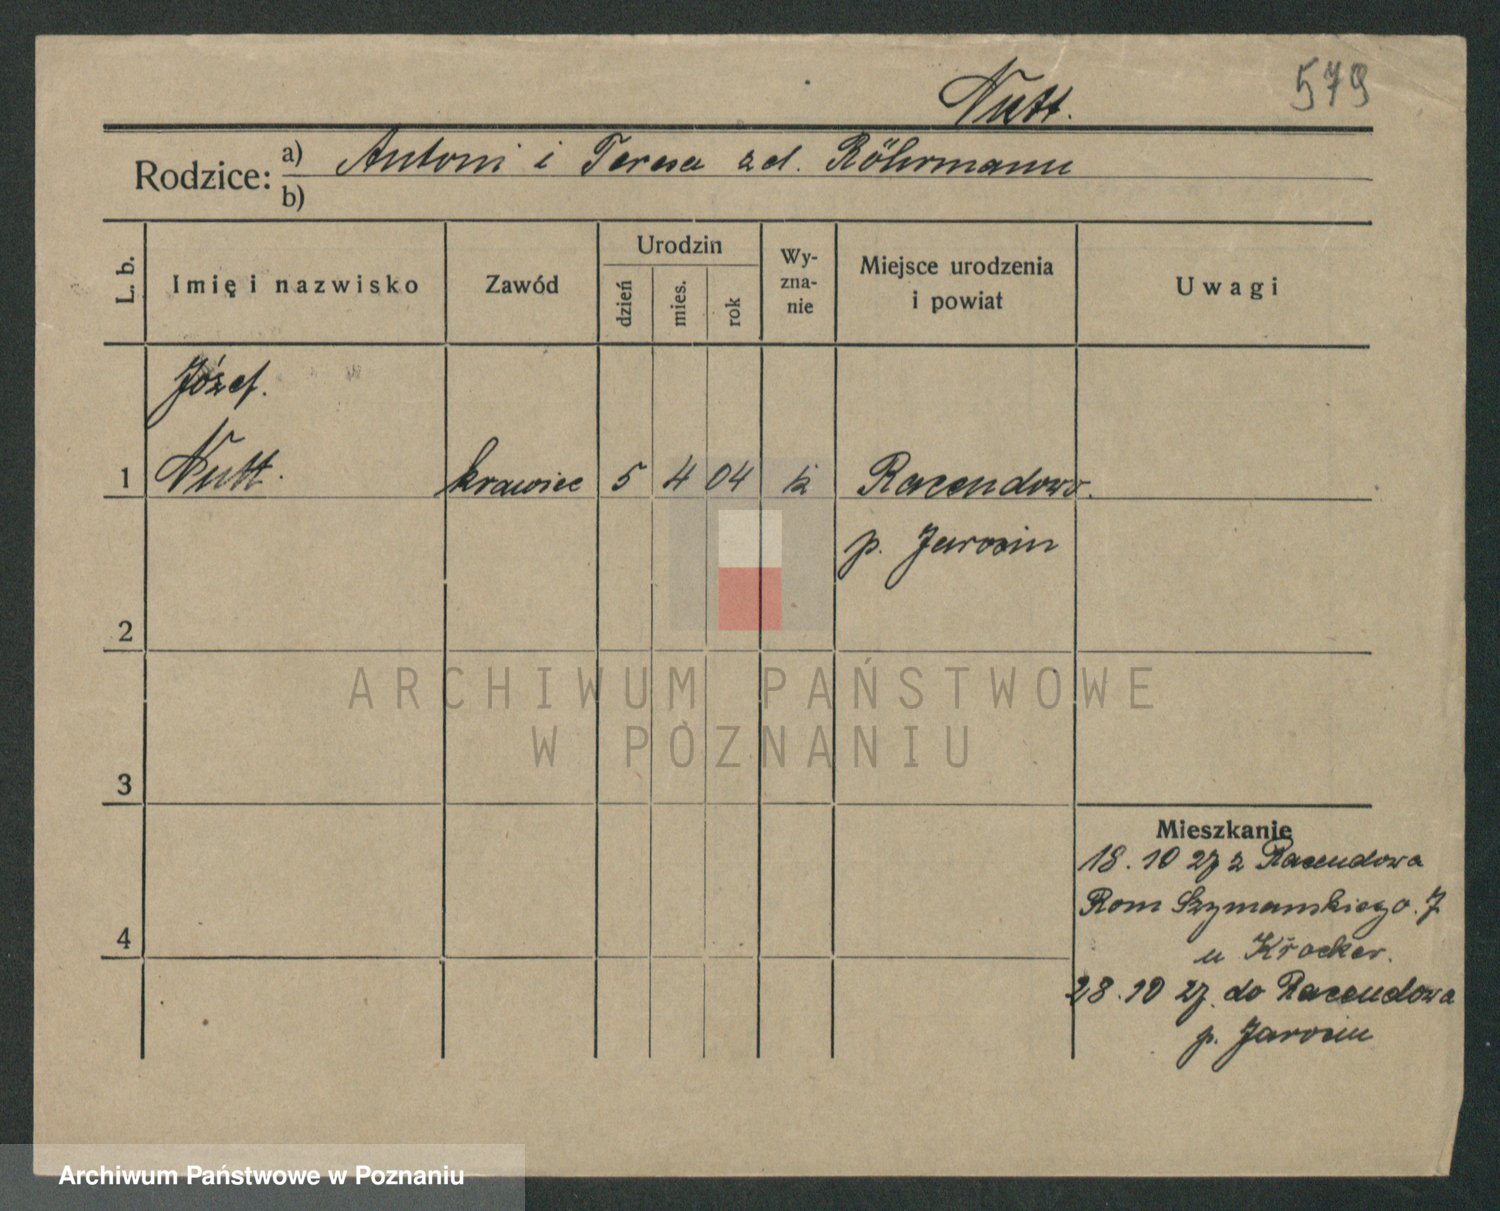 Nutt.
579
Rodzice: a) Antoni i Teresa zd. Röhrmann
b)
L. b.
Imię i nazwisko
Zawód
Urodzin
dzień
mies.
rok
Wy-
zna-
nie
Miejsce urodzenia
i powiat
Uwagi
Józef.
1 Nutt. krawiec 5 4 04 k Racendowo.
p. Jarocin
2
ARCHIWUM PAŃSTWOWE
W POZNANIU
3
Mieszkanie
18. 10 27 z Racendowa
Rom Szymanskiego. 7
4
u Krocker.
28. 10 27. do Racendowa
p. Jarocin
Archiwum Państwowe w Poznaniu